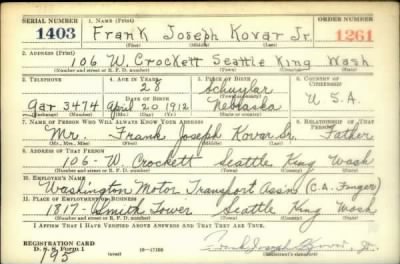 SERIAL NUMBER 1. NAME (Print) ORDER NUMBER
1403 Frank Joseph Kovar Jr. 1261
(First) (Middle) (Last)
2. ADDRESS (Print)
106 W. Crockett Seattle King Wash
(Number and street or R. F. D. number) (Town) (County) (State)
3. TELEPHONE 4. AGE IN YEARS 5. PLACE OF BIRTH 6. COUNTRY OF CITIZENSHIP
28 Schuylar
DATE OF BIRTH (Town or county)
Gar 3474 April 20 1912 Nebraska U.S.A.
(Exchange) (Number) (Mo.) (Day) (Yr.) (State or country)
7. NAME OF PERSON WHO WILL ALWAYS KNOW YOUR ADDRESS 8. RELATIONSHIP OF THAT PERSON
Mr. Frank Joseph Kovar Sr. Father
(Mr., Mrs., Miss) (First) (Middle) (Last)
9. ADDRESS OF THAT PERSON
106- W. Crockett Seattle King Wash
(Number and street or R. F. D. number) (Town) (County) (State)
10. EMPLOYER'S NAME
Washington Motor Transport Assn (C.A. Finger)
11. PLACE OF EMPLOYMENT OR BUSINESS
1817- Smith Tower Seattle King Wash
(Number and street or R. F. D. number) (Town) (County) (State)
I AFFIRM THAT I HAVE VERIFIED ABOVE ANSWERS AND THAT THEY ARE TRUE.
REGISTRATION CARD
D. S. S. Form 1 16-17105 Frank Joseph Kovar, Jr.
195